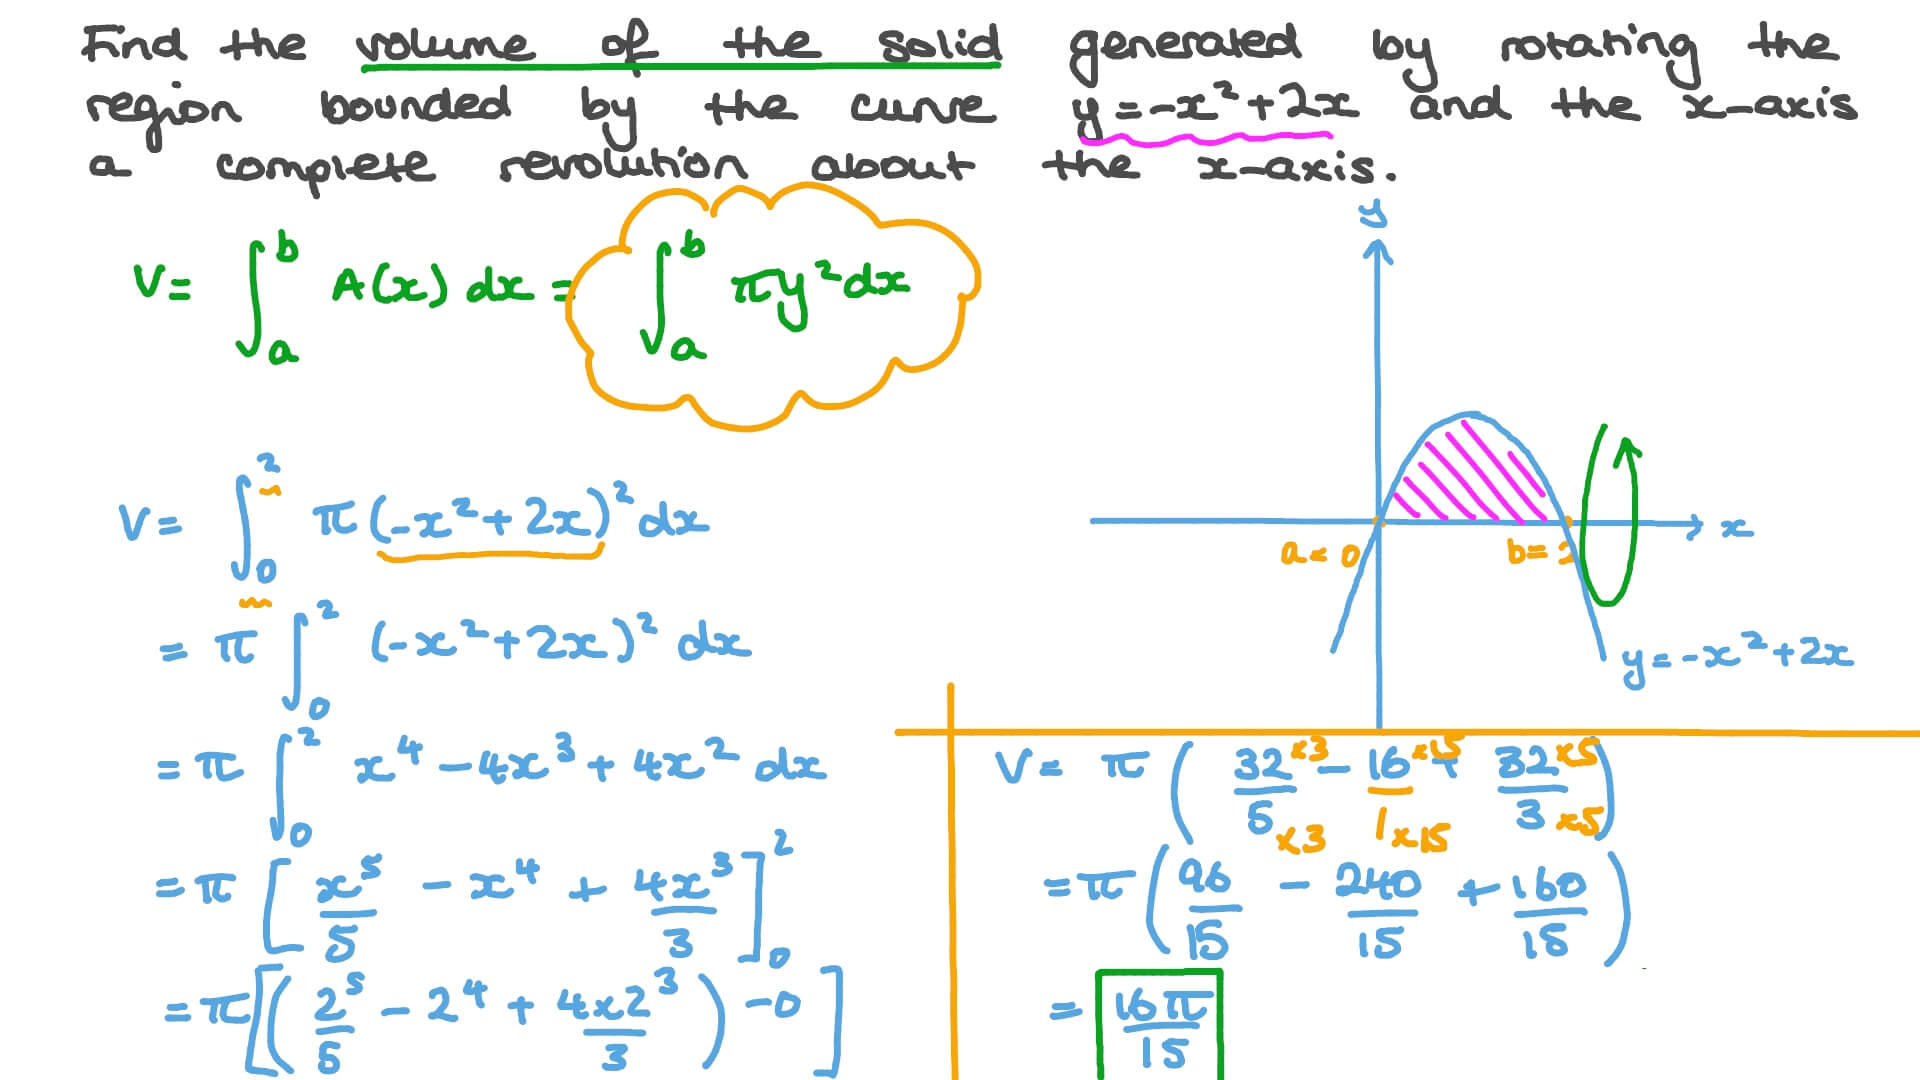 Find the volume of the solid generated by rotating the
region bounded by the curve y = -x² + 2x and the x-axis
a complete revolution about the x-axis.
V = ∫_a^b A(x) dx = ∫_a^b πy² dx
V = ∫_0^2 π(-x² + 2x)² dx
= π ∫_0^2 (-x² + 2x)² dx
= π ∫_0^2 x⁴ - 4x³ + 4x² dx
= π [x⁵/5 - x⁴ + 4x³/3]_0^2
= π [(2⁵/5 - 2⁴ + 4x2³/3) - 0]
y
x
a = 0
b = 2
y = -x² + 2x
V = π (32 x3/5 x3 - 16 x15/1 x15 + 32 x5/3 x5)
= π (96/15 - 240/15 + 160/15)
= 16π/15